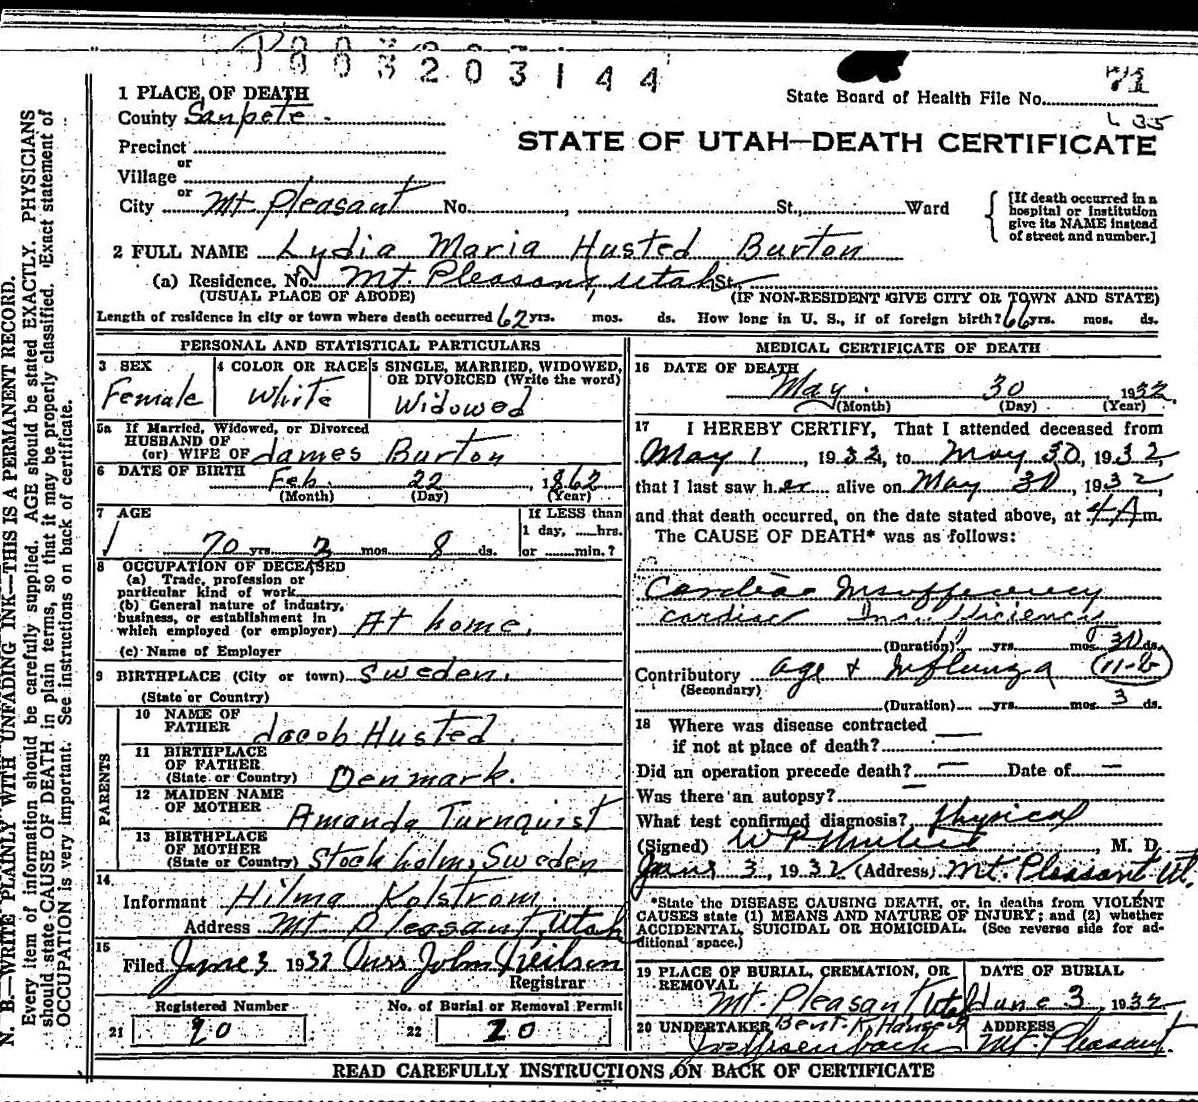 003203144
State Board of Health File No. 71
1 PLACE OF DEATH
County Sanpete
Precinct
STATE OF UTAH—DEATH CERTIFICATE
or
Village
or
City Mt Pleasant No. , St., Ward
[If death occurred in a hospital or institution give its NAME instead of street and number.]
2 FULL NAME Lydia Maria Husted Burton
(a) Residence. No. Mt. Pleasant, Utah St.
(USUAL PLACE OF ABODE) (IF NON-RESIDENT GIVE CITY OR TOWN AND STATE)
Length of residence in city or town where death occurred 62 yrs. mos. ds. How long in U. S., if of foreign birth? 66 yrs. mos. ds.
PERSONAL AND STATISTICAL PARTICULARS
3 SEX
Female
4 COLOR OR RACE
White
5 SINGLE, MARRIED, WIDOWED, OR DIVORCED (Write the word)
Widowed
5a If Married, Widowed, or Divorced
HUSBAND OF
(or) WIFE OF James Burton
6 DATE OF BIRTH Feb. 22, 1862
(Month) (Day) (Year)
7 AGE
70 yrs. 3 mos. 8 ds.
If LESS than
1 day, hrs.
or min.?
8 OCCUPATION OF DECEASED
(a) Trade, profession or
particular kind of work
(b) General nature of industry,
business, or establishment in
which employed (or employer) At home.
(c) Name of Employer
9 BIRTHPLACE (City or town) Sweden.
(State or Country)
PARENTS
10 NAME OF
FATHER Jacob Husted.
11 BIRTHPLACE
OF FATHER
(State or Country) Denmark.
12 MAIDEN NAME
OF MOTHER Amanda Turnquist
13 BIRTHPLACE
OF MOTHER
(State or Country) Stockholm, Sweden
14
Informant Hilma Kolstrom.
Address Mt Pleasant, Utah
15
Filed June 3 1932 John Neilson
Registrar
Registered Number
21 20
No. of Burial or Removal Permit
22 20
MEDICAL CERTIFICATE OF DEATH
16 DATE OF DEATH
May 30 1932
(Month) (Day) (Year)
17 I HEREBY CERTIFY, That I attended deceased from
May 1, 1932, to May 30, 1932,
that I last saw her alive on May 30, 1932,
and that death occurred, on the date stated above, at 4 A m.
The CAUSE OF DEATH* was as follows:
Cardiac Insufficiency
Cardiac Insufficiency
(Duration) yrs. mos. 30 ds.
Contributory age & Influenza (11-B)
(Secondary)
(Duration) yrs. mos. 3 ds.
18 Where was disease contracted
if not at place of death?
Did an operation precede death? — Date of —
Was there an autopsy? —
What test confirmed diagnosis? Physical
(Signed) W P , M. D.
June 3, 1932 (Address) Mt. Pleasant Ut.
*State the DISEASE CAUSING DEATH, or, in deaths from VIOLENT
CAUSES state (1) MEANS AND NATURE OF INJURY; and (2) whether
ACCIDENTAL, SUICIDAL OR HOMICIDAL. (See reverse side for additional space.)
19 PLACE OF BURIAL, CREMATION, OR
REMOVAL
Mt. Pleasant Utah
DATE OF BURIAL
June 3, 1932
20 UNDERTAKER Bent R Hansen
ADDRESS
Mt. Pleasant.
READ CAREFULLY INSTRUCTIONS ON BACK OF CERTIFICATE
N. B.—WRITE PLAINLY WITH UNFADING INK—THIS IS A PERMANENT RECORD.
Every item of information should be carefully supplied. AGE should be stated EXACTLY. PHYSICIANS
should state CAUSE OF DEATH in plain terms, so that it may be properly classified. Exact statement of
OCCUPATION is very important. See instructions on back of certificate.